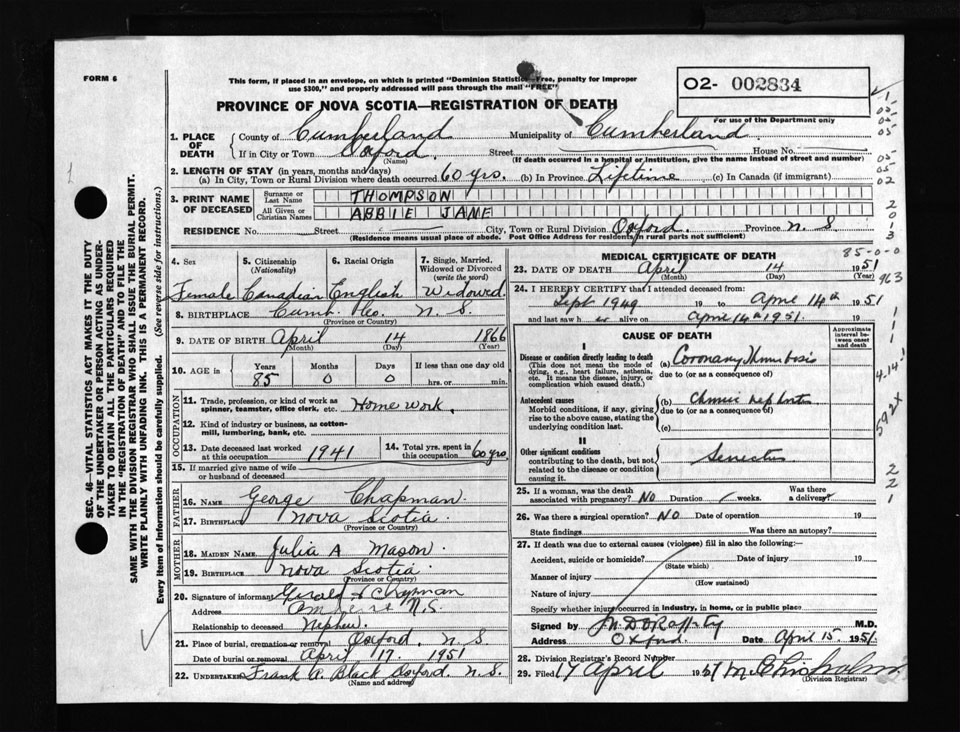 FORM 6
This form, if placed in an envelope, on which is printed "Dominion Statistics—Free, penalty for improper
use $300," and properly addressed will pass through the mail "FREE"
O2- 002834
For use of the Department only
PROVINCE OF NOVA SCOTIA—REGISTRATION OF DEATH
1. PLACE OF DEATH
County of Cumberland Municipality of Cumberland
If in City or Town Oxford. Street House No.
(Name) (If death occurred in a hospital or institution, give the name instead of street and number)
2. LENGTH OF STAY (in years, months and days)
(a) In City, Town or Rural Division where death occurred 60 yrs. (b) In Province Lifetime (c) In Canada (if immigrant)
3. PRINT NAME OF DECEASED
Surname or Last Name THOMPSON
All Given or Christian Names ABBIE JANE
RESIDENCE No. Street City, Town or Rural Division Oxford. Province N. S
(Residence means usual place of abode. Post Office Address for residents in rural parts not sufficient)
4. Sex
Female
5. Citizenship
(Nationality)
Canadian
6. Racial Origin
English
7. Single, Married, Widowed or Divorced
(write the word)
Widowed.
8. BIRTHPLACE Cumb. Co. N. S.
(Province or Country)
9. DATE OF BIRTH April 14 1866
(Month) (Day) (Year)
10. AGE in
Years Months Days If less than one day old
85 0 0 hrs. or min.
OCCUPATION
11. Trade, profession, or kind of work as
spinner, teamster, office clerk, etc. Home work.
12. Kind of industry or business, as cotton-
mill, lumbering, bank, etc.
13. Date deceased last worked
at this occupation 1941
14. Total yrs. spent in
this occupation 60 yrs.
15. If married give name of wife
or husband of deceased
FATHER
16. NAME George Chapman.
17. BIRTHPLACE Nova Scotia.
(Province or Country)
MOTHER
18. MAIDEN NAME Julia A Mason.
19. BIRTHPLACE Nova Scotia
(Province or Country)
20. Signature of informant Gerald Chapman
Address Amherst N.S.
Relationship to deceased Nephew.
21. Place of burial, cremation or removal Oxford. N. S
Date of burial or removal April 17. 1951
22. UNDERTAKER Frank A. Black Oxford. N. S.
(Name and address)
MEDICAL CERTIFICATE OF DEATH
85-0-0
23. DATE OF DEATH April 14 1951
(Month) (Day) (Year)
24. I HEREBY CERTIFY that I attended deceased from:
Sept 1949 19 to April 14th 1951
and last saw her alive on April 14th 1951.
CAUSE OF DEATH
Approximate interval between onset and death
I
Disease or condition directly leading to death
(This does not mean the mode of
dying, e.g., heart failure, asthenia,
etc. It means the disease, injury, or
complication which caused death.)
(a) Coronary Thrombosis
due to (or as a consequence of)
Antecedent causes
Morbid conditions, if any, giving
rise to the above cause, stating the
underlying condition last.
(b) Chronic nephritis
due to (or as a consequence of)
(c)
II
Other significant conditions
contributing to the death, but not
related to the disease or condition
causing it.
25. If a woman, was the death
associated with pregnancy? NO Duration weeks. Was there a delivery?
26. Was there a surgical operation? NO Date of operation 19
State findings Was there an autopsy?
27. If death was due to external causes (violence) fill in also the following:
Accident, suicide or homicide? Date of injury 19
(State which)
Manner of injury
(How sustained)
Nature of injury
Specify whether injury occurred in industry, in home, or in public place
Signed by M.D.
Address Oxford. Date April 15. 1951.
28. Division Registrar's Record Number
29. Filed 17 April 1951 M. Chisholm
(Division Registrar)
SEC. 46—VITAL STATISTICS ACT MAKES IT THE DUTY
OF THE UNDERTAKER OR PERSON ACTING AS UNDER-
TAKER TO OBTAIN ALL THE PARTICULARS REQUIRED
IN THE "REGISTRATION OF DEATH" AND TO FILE THE
SAME WITH THE DIVISION REGISTRAR WHO SHALL ISSUE THE BURIAL PERMIT.
WRITE PLAINLY WITH UNFADING INK. THIS IS A PERMANENT RECORD.
Every item of Information should be carefully supplied. (See reverse side for instructions.)